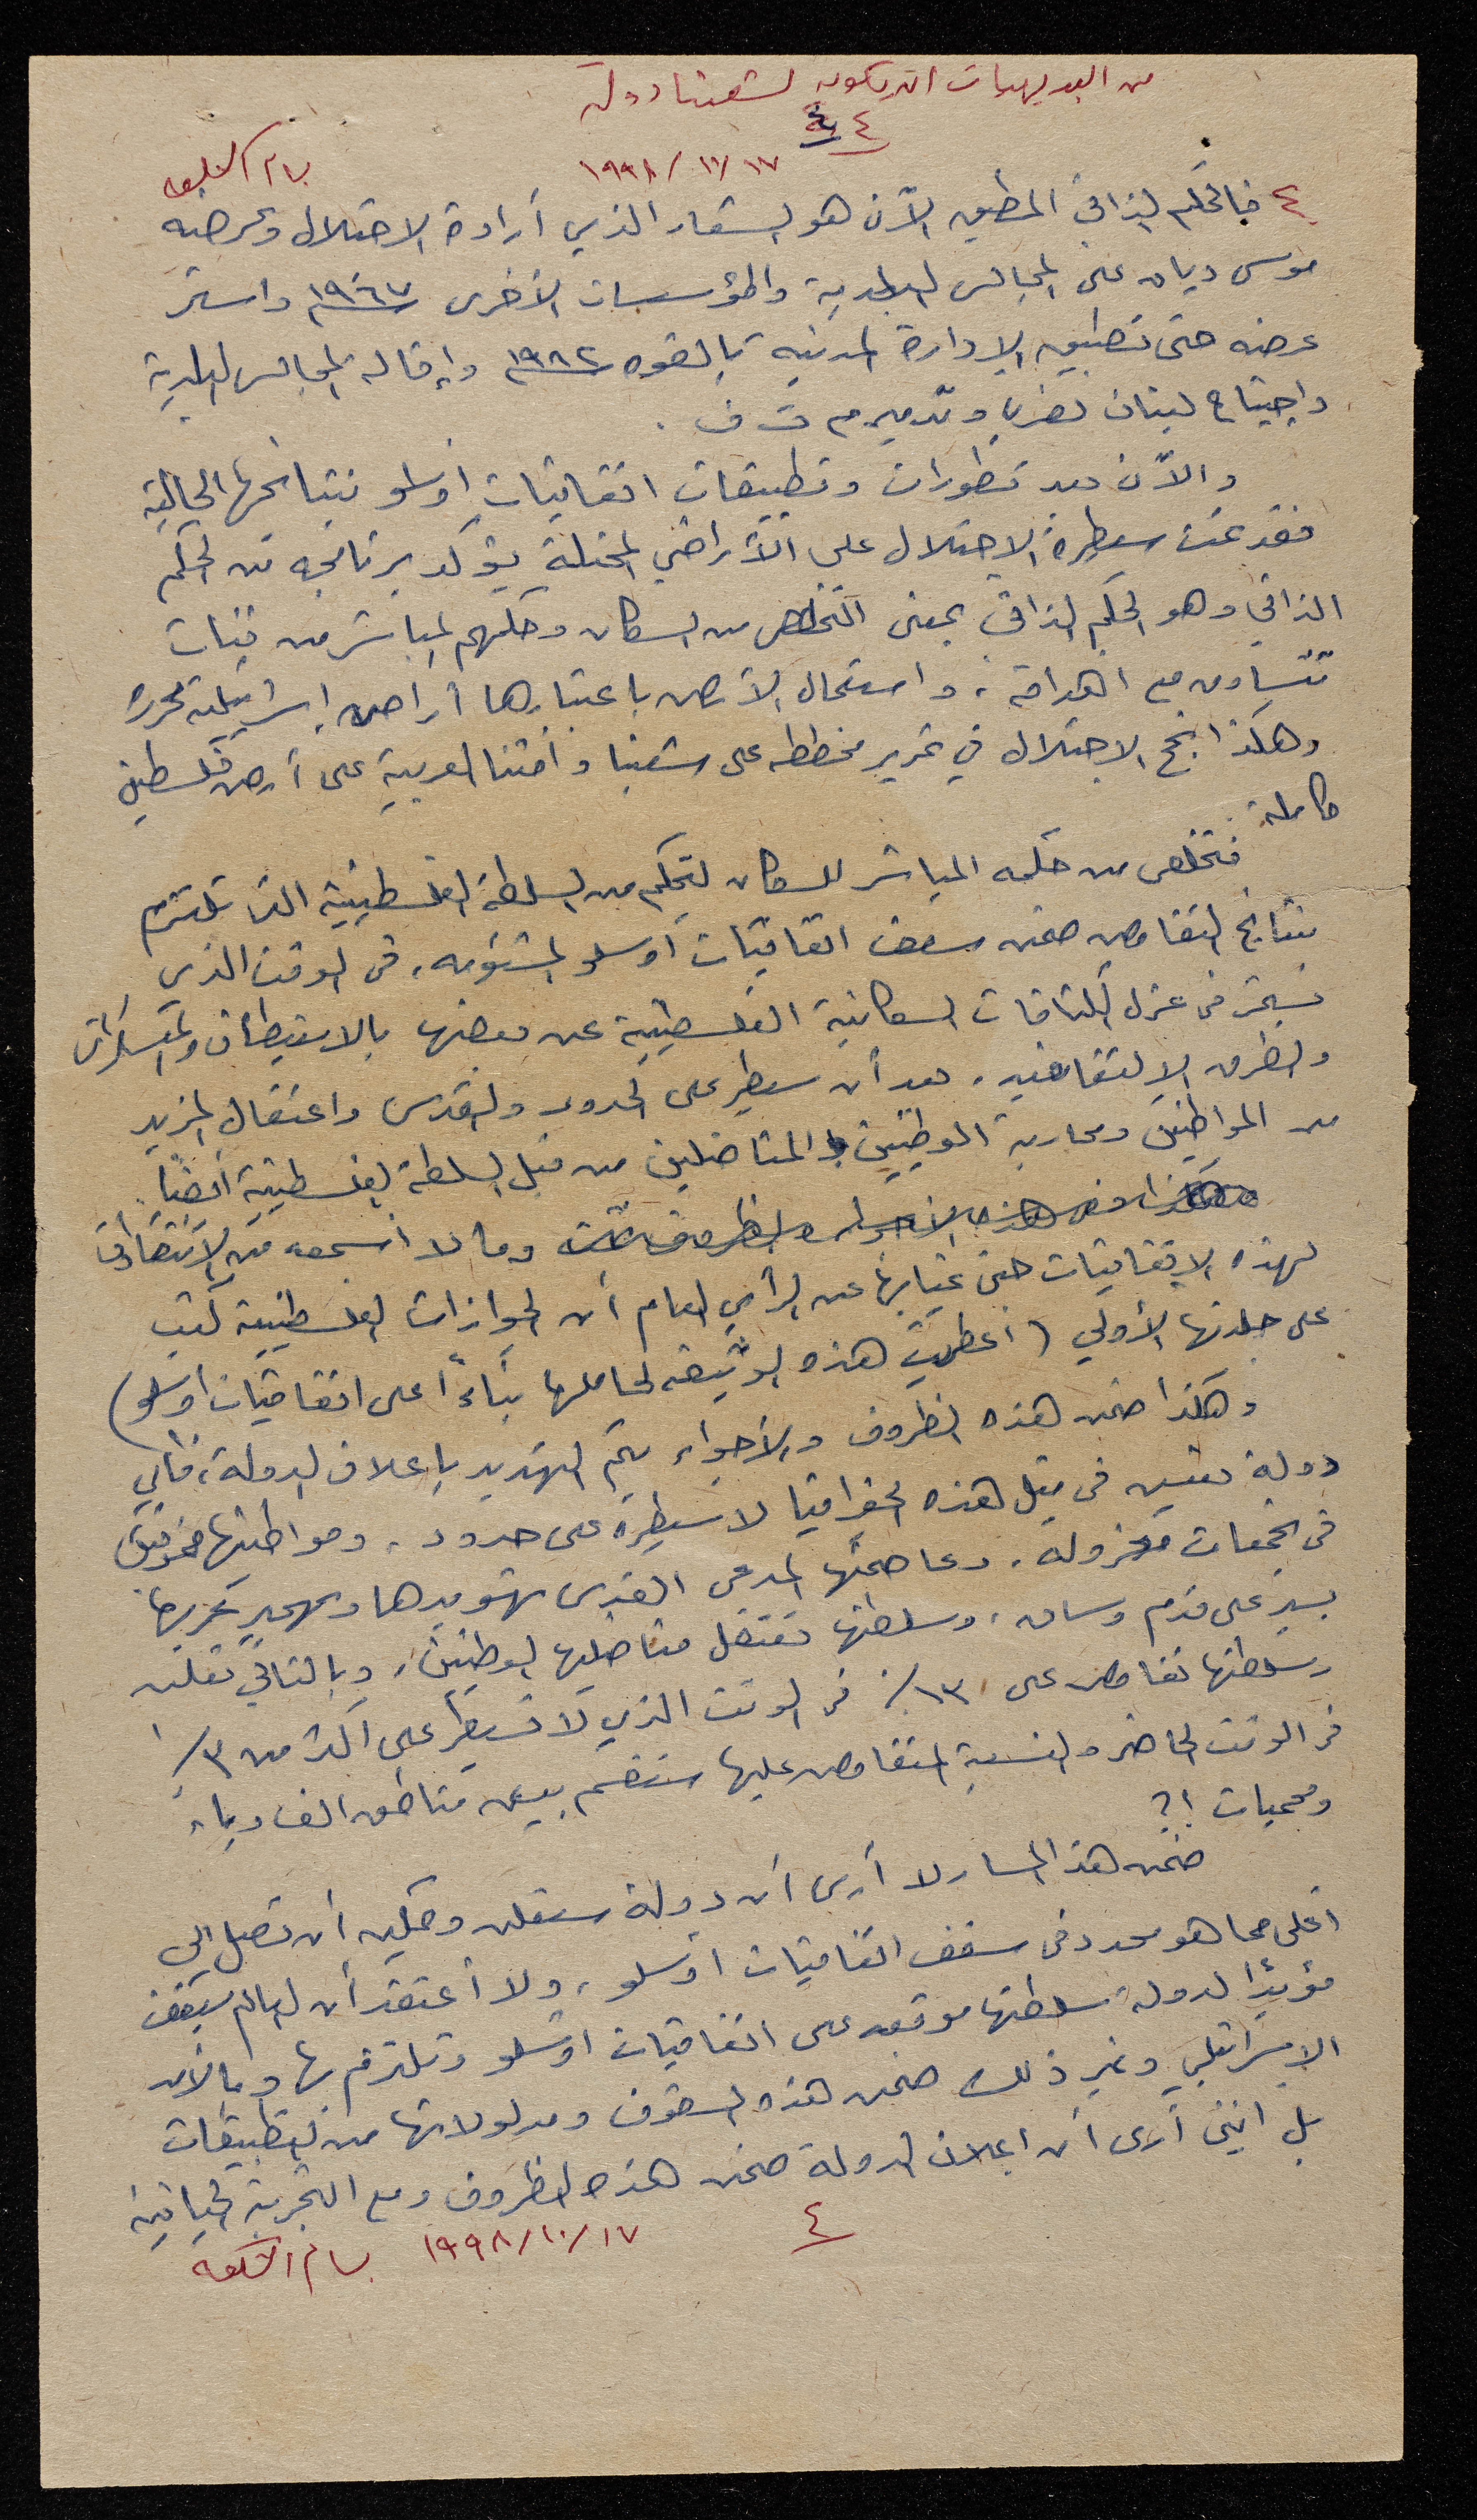 من البديهيات ان يكون لشعبنا دولة
٤
١٧/١٠/١٩٩٨ بسام الشكعه
٤ فالحكم الذاتي المطبق الآن هو الشعار الذي أراده الاحتلال وعرضه
موسى ديان على المجالس البلدية والمؤسسات الأخرى ١٩٦٧م واستمر
عرضه حتى تطبيق الإدارة المدنيه بالقوه ١٩٨٢م وإقالة المجالس البلدية
واجتياح لبنان لضرب وتدمير م ت ف .
والآن بعد تطورات وتطبيقات اتفاقيات أوسلو نتائجها الحالية
فقد عنت سيطرة الاحتلال على الأراضي المحتلة يؤكد برنامجه من الحكم
الذاتي وهو الحكم الذاتي بمعنى التخلص من السكان وحكمهم المباشر من فئات
تتساوى مع اهدافه ، واستعمال الأرض باعتبارها أراضى إسرائيلية محررة
وهكذا نجح الاحتلال في تمرير مخططه على شعبنا وأمتنا العربية على أرض فلسطين
كاملة .
فتخلص من حكمه المباشر للسكان ليتحكم من السلطة الفلسطينية التى تلتزم
بنتائج التفاوض ضمن سقف اتفاقيات أوسلو المشئومه ، فى الوقت الذى
يستمر فى عزل الكثافات السكانية الفلسطينية عن بعضها بالاستيطان والمعسكرات
والطرق الإلتفافيه ، بعد أن سيطر على الحدود والقدس واعتقال المزيد
من المواطنين ومحاربة الوطنيين والمناضلين من قبل السلطة الفلسطينية أيضاً .
وما لا أسمعه من الإنتقادات
لهذه الإتفاقيات حتى غيابها عن الرأي العام أن الجوازات الفلسطينية كتب
على جلدتها الأولي ( أعطيت هذه الوثيقه لحاملها بناءً على اتفاقيات أوسلو )
وهكذا ضمن هذه الظروف والأجواء يتم التهديد بإعلان الدولة ، فأي
دولة تعيش فى مثل هذه الجغرافيا لا سيطرة على حدود ، ومواطنيها ممزوقين
فى تجمعات معزولة ، وعاصمتها المدعى القدس تهويدها وتهجير عربها
يسير على قدم وساق ، وسلطتها تعتقل مناضليها الوطنيين ، وبالتالي تعلن
وسلطتها تفاوض على ١٣٪ فى الوقت الذي لا تسيطر على أكثر من ٣٪
فى الوقت الحاضر والنسبة المتفاوض عليها ستقسم بين مناطق الف وباء
ومحميات !؟
ضمن هذا المسار لا أرى أن دولة ستعلن وممكن أن تصل الى
أعلى مما هو محدد فى سقف اتفاقيات أوسلو ، ولا أعتقد أن العالم سيقف
مؤيدًا لدولة سلطتها موقعه على اتفاقيات أوسلو وتلتزم بها وبالأمن
الإسرائيلي وغير ذلك ضمن هذه السقوف ومدلولاتها من التطبيقات
بل انني أرى أن اعلان الدولة ضمن هذه الظروف ومع التجربة الحياتية
٤
١٧/١٠/١٩٩٨ بسام الشكعه